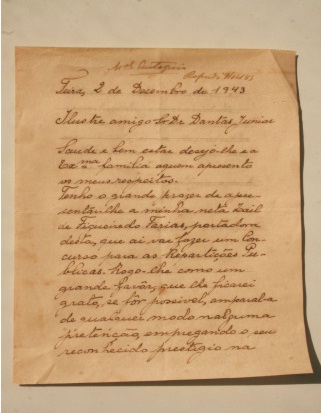 Feira, 2 de Dezembro de 1943
Ilustre amigo Sr. Dr. Dantas Junior
Saude e bem estar desejo-lhe e a
Exma familia a quem apresento
os meus respeitos.
Tenho o grande prazer de apre-
sentar-lhe a minha neta Zail
de Figueiredo Farias, portadora
desta, que ai vae fazer um con-
curso para as Repartições Pu-
blicas. Rogo-lhe como um
grande favôr, que lhe ficarei
grato, se fôr possivel, ampara-la
de qualquer modo nalguma
pretenção, empregando o seu
reconhecido prestigio na